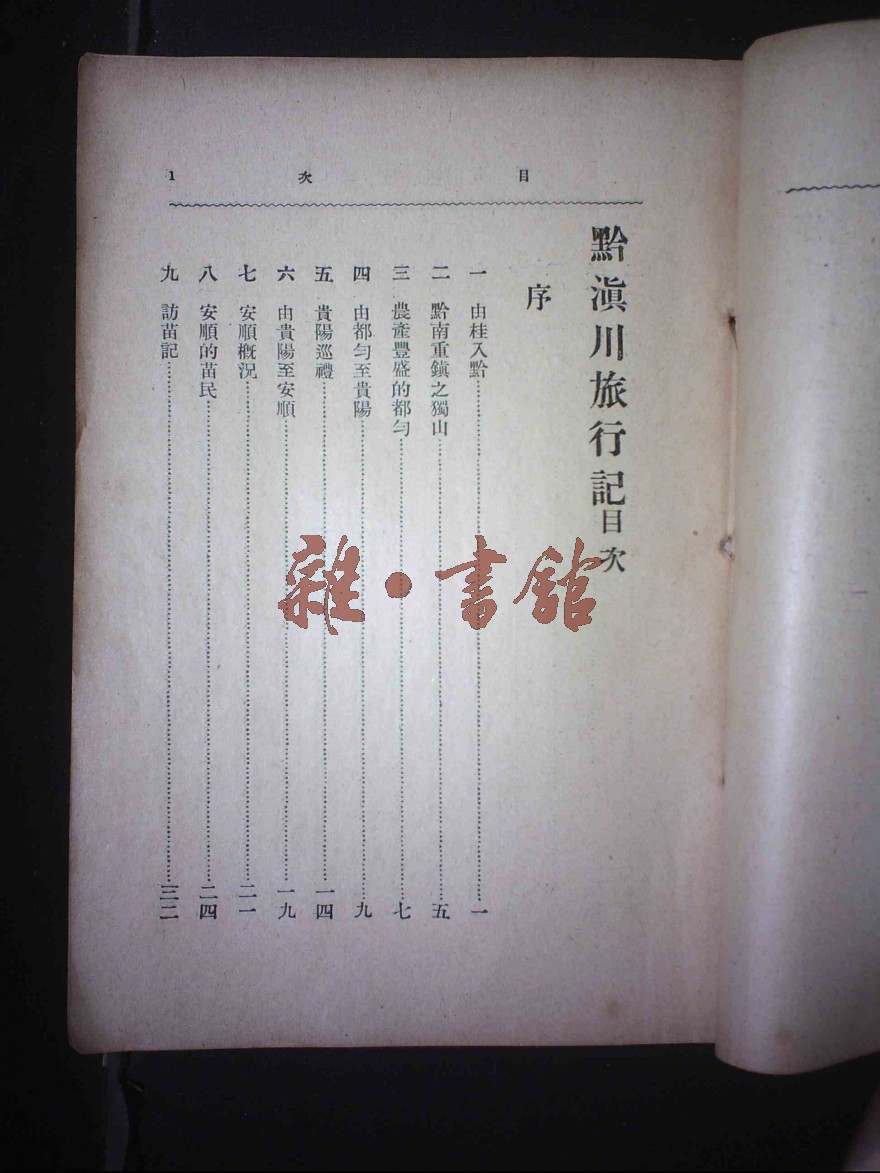 目次 1
黔滇川旅行記目次
序
一 由桂入黔……一
二 黔南重鎮之獨山……五
三 農產豐盛的都匀……七
四 由都匀至貴陽……九
五 貴陽巡禮……一四
六 由貴陽至安順……一九
七 安順概況……二一
八 安順的苗民……二四
九 訪苗記……三二
雜·書館